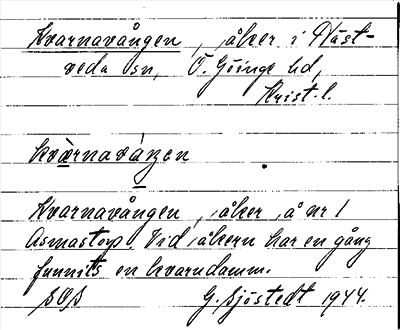 Kvarnavången, åker i Näst-
veda sn, Ö. Göinge hd,
Krist. l.
kvàrnavàŋen
Kvarnavången, åker, å nr 1
Asmastorp. Vid åkern har en gång
funnits en kvarndamm.
SOS G. Sjöstedt 1944.